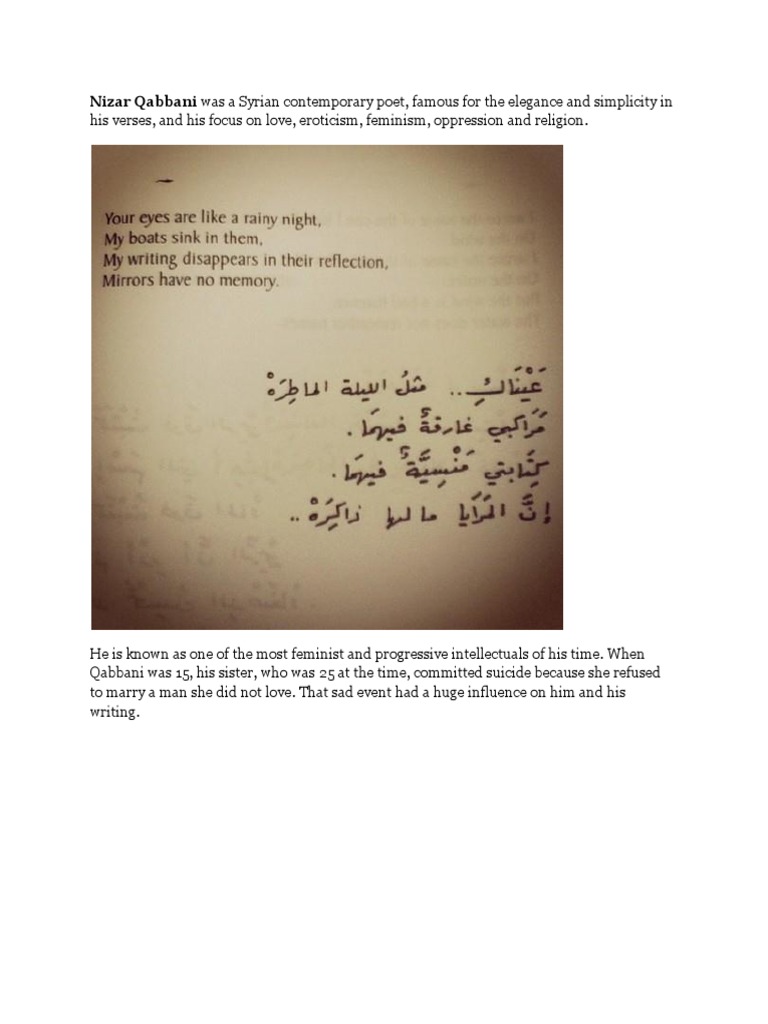 Nizar Qabbani was a Syrian contemporary poet, famous for the elegance and simplicity in
his verses, and his focus on love, eroticism, feminism, oppression and religion.
Your eyes are like a rainy night,
My boats sink in them,
My writing disappears in their reflection,
Mirrors have no memory.
عَيْنَاكِ.. مثلُ الليلة الماطِرَهْ
مَرَاكبي غارقةٌ فيهمَا.
كِتَابتي مَنْسِيَّةٌ فيهمَا.
إنَّ المَرَايا ما لها ذاكِرَهْ..
He is known as one of the most feminist and progressive intellectuals of his time. When
Qabbani was 15, his sister, who was 25 at the time, committed suicide because she refused
to marry a man she did not love. That sad event had a huge influence on him and his
writing.